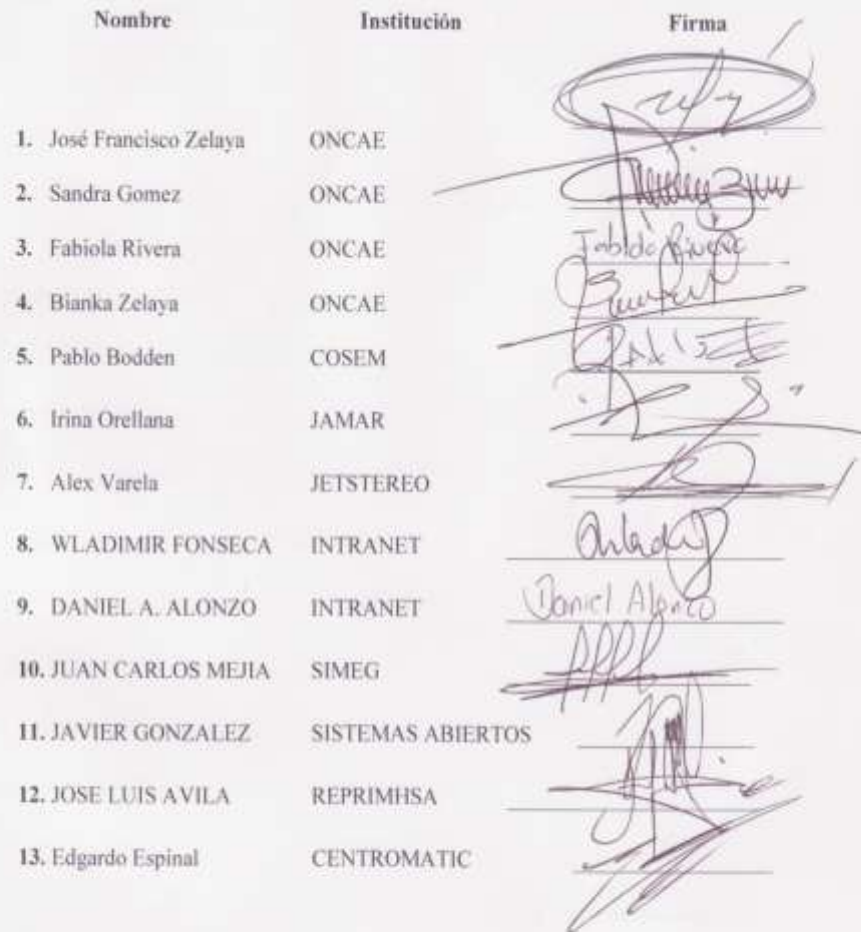 Nombre Institución Firma
1. José Francisco Zelaya ONCAE
2. Sandra Gomez ONCAE
3. Fabiola Rivera ONCAE
4. Bianka Zelaya ONCAE
5. Pablo Bodden COSEM
6. Irina Orellana JAMAR
7. Alex Varela JETSTEREO
8. WLADIMIR FONSECA INTRANET
9. DANIEL A. ALONZO INTRANET Daniel Alonzo
10. JUAN CARLOS MEJIA SIMEG
11. JAVIER GONZALEZ SISTEMAS ABIERTOS
12. JOSE LUIS AVILA REPRIMHSA
13. Edgardo Espinal CENTROMATIC